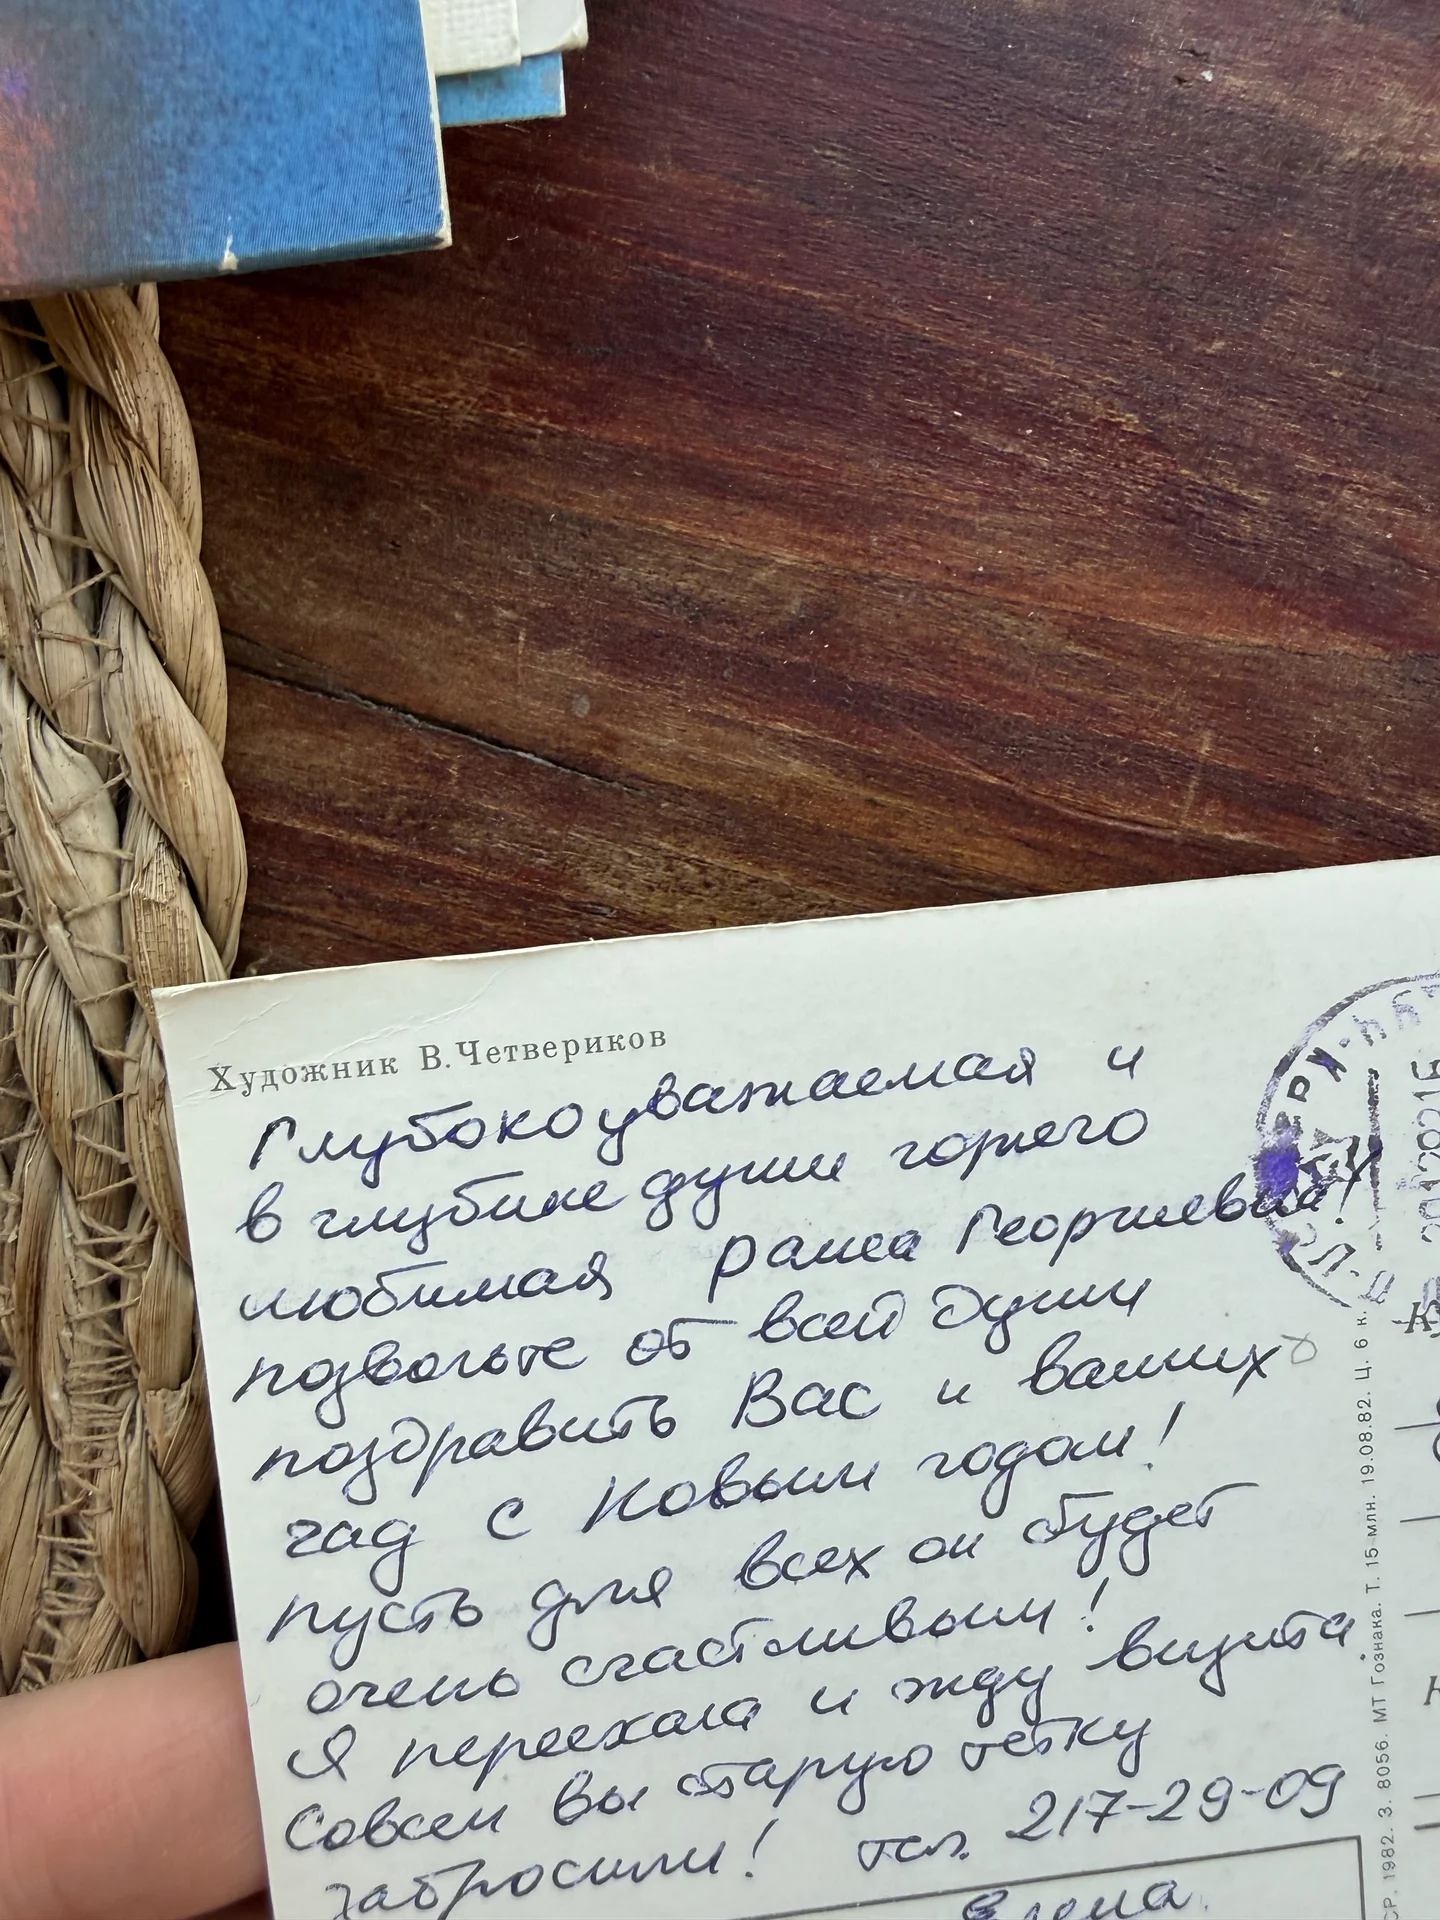 Художник В.Четвериков
Глубокоуважаемая и
в глубине души горячего
любимая Раиса Георгиевна!
позвольте от всей души
поздравить Вас и ваших
чад с Новым годом!
пусть для всех он будет
очень счастливым!
Я переехала и жду визита
Совсем вы старую тетку
забросили! тел. 217-29-09
Елена.
1982. З. 8056. МТ Гознака. Т. 15 млн. 19.08.82. Ц. 6 к.